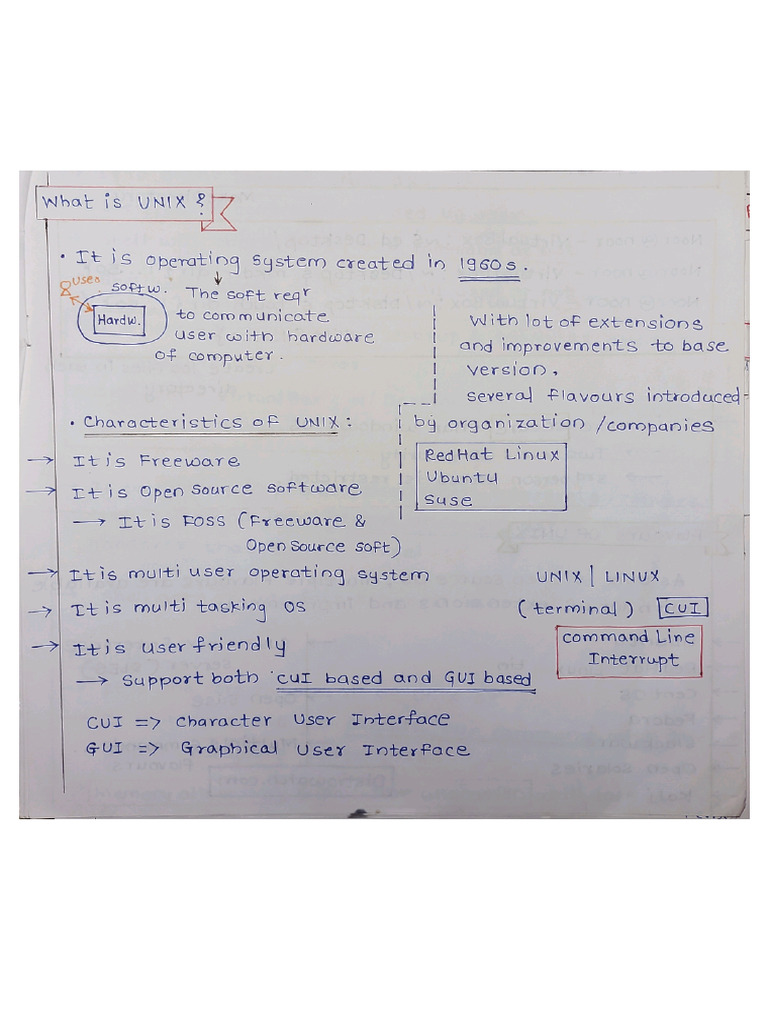 What is UNIX ?
• It is operating system created in 1960s.
User
softw.
Hardw.
The soft reqr
to communicate
user with hardware
of computer.
With lot of extensions
and improvements to base
version,
several flavours introduced
by organization /companies
RedHat Linux
Ubuntu
Suse
• Characteristics of UNIX :
→ It is Freeware
→ It is Open Source software
→ It is FOSS (Freeware &
Open Source soft)
→ It is multi user operating system
→ It is multi tasking OS
→ It is user friendly
→ Support both CUI based and GUI based
CUI => Character User Interface
GUI => Graphical User Interface
UNIX | LINUX
(terminal) CUI
Command Line
Interrupt